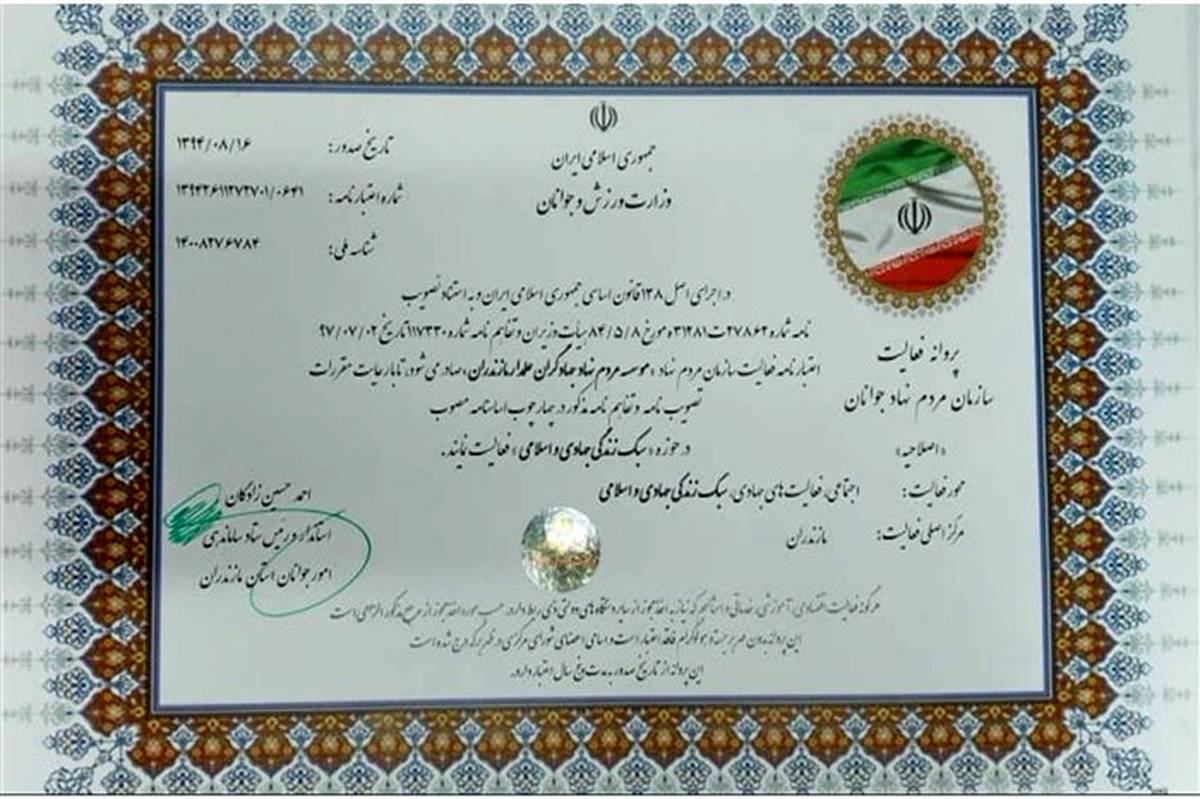 جمهوری اسلامی ایران
وزارت ورزش و جوانان
تاریخ صدور: ۱۳۹۴/۰۸/۱۶
شماره اعتبارنامه: ۱۳۹۴۲۶۱۱۲۷۲۷۰۱/۰۶۴۱
شناسه ملی: ۱۴۰۰۸۲۷۶۷۸۴
پروانه فعالیت
سازمان مردم نهاد جوانان
«اصلاحیه»
در اجرای اصل ۱۳۸ قانون اساسی جمهوری اسلامی ایران و به استناد تصویب
نامه شماره ۲۷۸۶۲ت۳۱۲۸۱ه مورخ ۸۴/۵/۸ هیات وزیران و تفاهم نامه شماره ۱۱۷۳۳۰ تاریخ ۹۷/۰۷/۰۲
اعتبارنامه فعالیت سازمان مردم نهاد «موسسه مردم نهاد جهادگران علمدار مازندران» صادر می شود، تا با رعایت مقررات
تصویب نامه و تفاهم نامه مذکور در چهارچوب اساسنامه مصوب
در حوزه «سبک زندگی جهادی و اسلامی» فعالیت نمایند.
محور فعالیت: اجتماعی، فعالیت های جهادی، سبک زندگی جهادی و اسلامی
مرکز اصلی فعالیت: مازندران
احمد حسین زادگان
استاندار و رییس ستاد ساماندهی
امور جوانان استان مازندران
هر گونه فعالیت اقتصادی، آموزشی، خدماتی و امثالهم که نیاز به اخذ مجوز از سایر دستگاه های دولتی ذی ربط دارد، حسب مورد اخذ مجوز از مرجع مذکور الزامی است
این پروانه بدون مهر برجسته و هولوگرام فاقد اعتبار است و اسامی اعضای شورای مرکزی در ظهر برگه درج شده است
این پروانه از تاریخ صدور به مدت پنج سال اعتبار دارد.